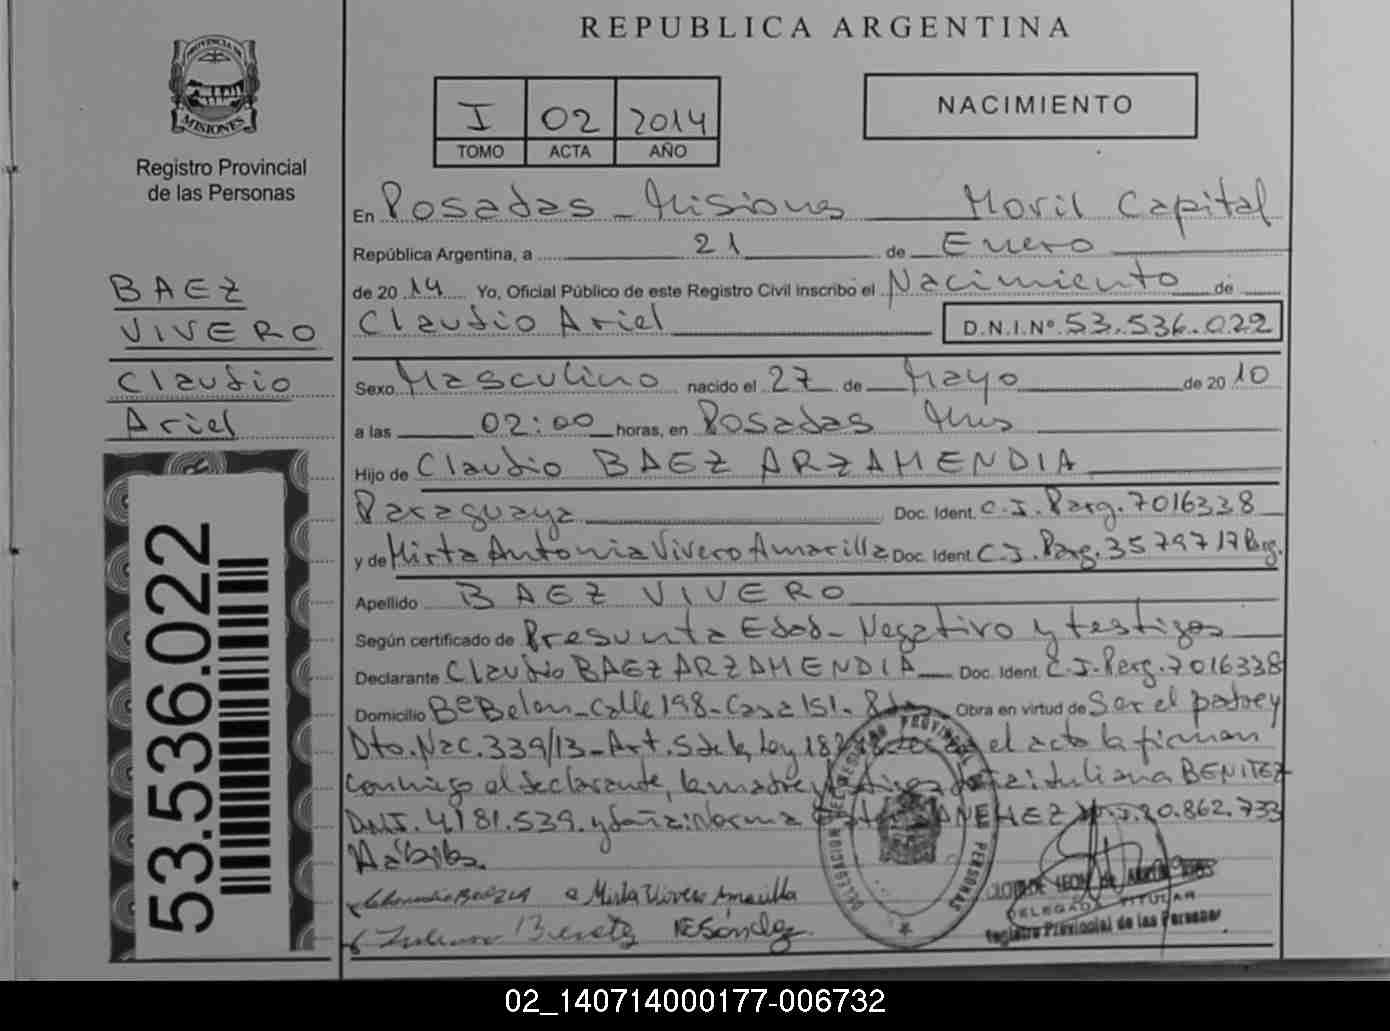 REPUBLICA ARGENTINA
PROVINCIA DE
MISIONES
Registro Provincial
de las Personas
I 02 2014
TOMO ACTA AÑO
NACIMIENTO
En Posadas - Misiones Movil Capital
República Argentina, a 21 de Enero
de 20 14 Yo, Oficial Público de este Registro Civil inscribo el Nacimiento de
Claudio Ariel D.N.I.Nº. 53.536.022
BAEZ
VIVERO
Claudio
Ariel
53.536.022
Sexo Masculino nacido el 27 de Mayo de 20 10
a las 02:00 horas, en Posadas Mnes
Hijo de Claudio BAEZ ARZAMENDIA
Paraguaya Doc. Ident. C.I. Parg. 7016338
y de Mirta Antonia Vivero Amarilla Doc. Ident. C.I. Parg. 3579717 Parg.
Apellido BAEZ VIVERO
Según certificado de Presunta Edad - Negativo y testigos
Declarante Claudio BAEZ ARZAMENDIA Doc. Ident. C.I. Parg. 7016338
Domicilio Bº Belen - Calle 198 - Casa 151 - Obra en virtud de Ser el padre y
Dto. Nac. 339/13 - Art. 5 de la Ley el acto la firman
conmigo el declarante, la madre y testigos Juliana BENITEZ
DNI. 4181.539. y doña Norma 20.862.733
Claudio BAEZ A Mirta Vivero Amarilla
Julian Benitez NE Sánchez
DELEGACION DEL REGISTRO PROVINCIAL DE LAS PERSONAS
DELEGADO TITULAR
Registro Provincial de las Personas
02_140714000177-006732